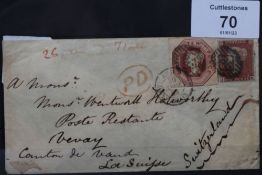 Cuttlestones
70
01/01/23
26
PD
A Mons?
Mons. Wentwall Holworthy
Poste Restante
Vevay
Canton de Vaud
La Suisse
Switzerland